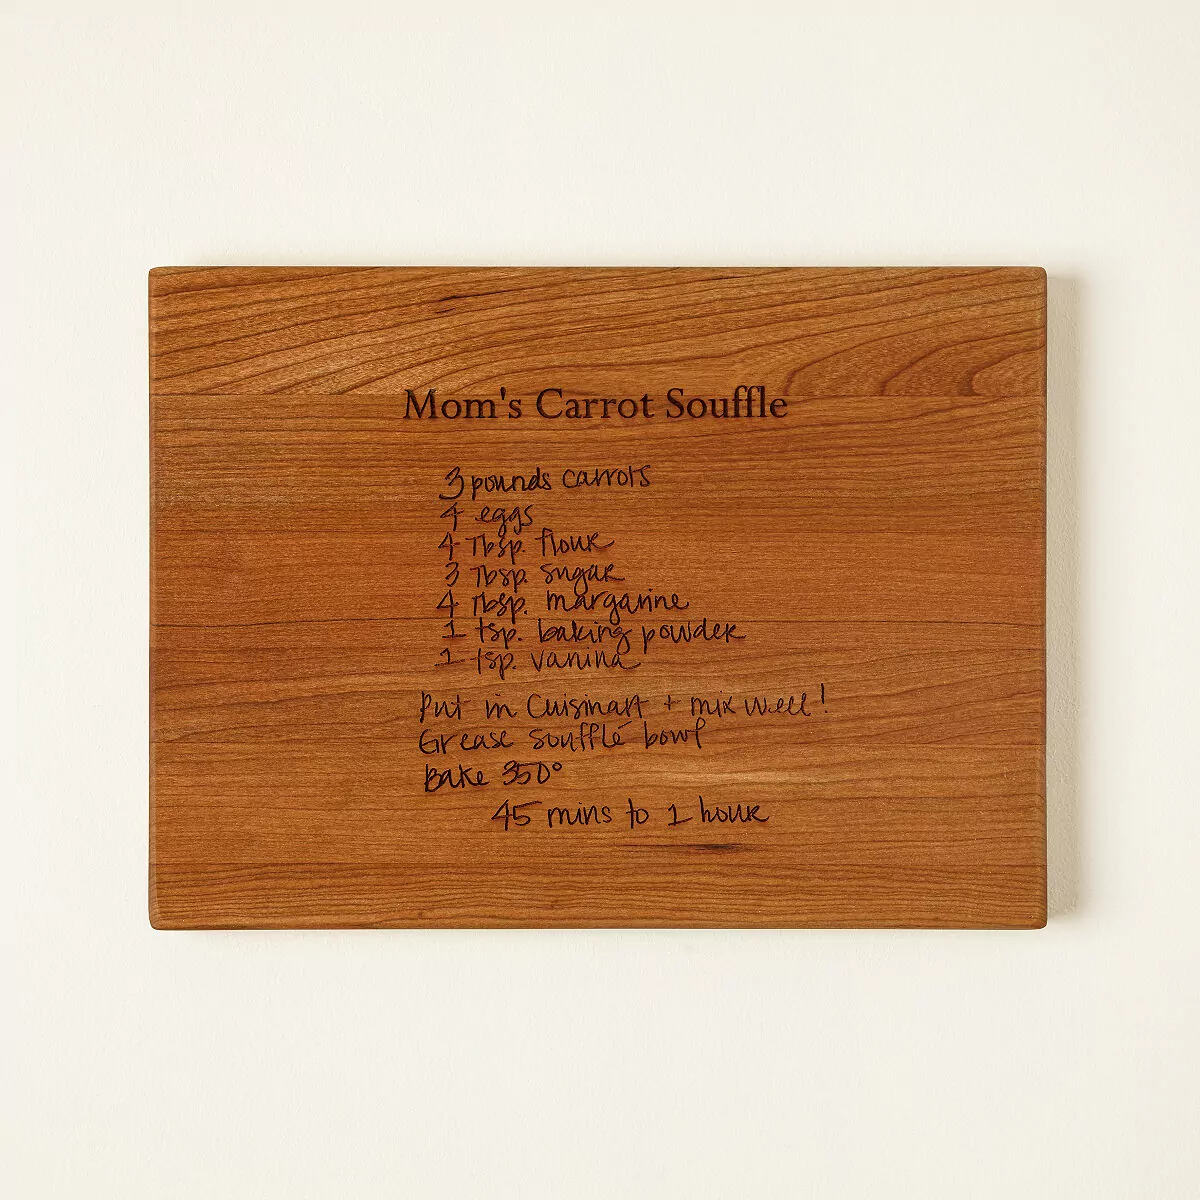 Mom's Carrot Souffle
3 pounds carrots
4 eggs
4 Tbsp. flour
3 Tbsp. sugar
4 Tbsp. margarine
1 tsp. baking powder
1 tsp. vanina
Put in Cuisinart + mix well!
Grease soufflé bowl
Bake 350°
45 mins to 1 hour